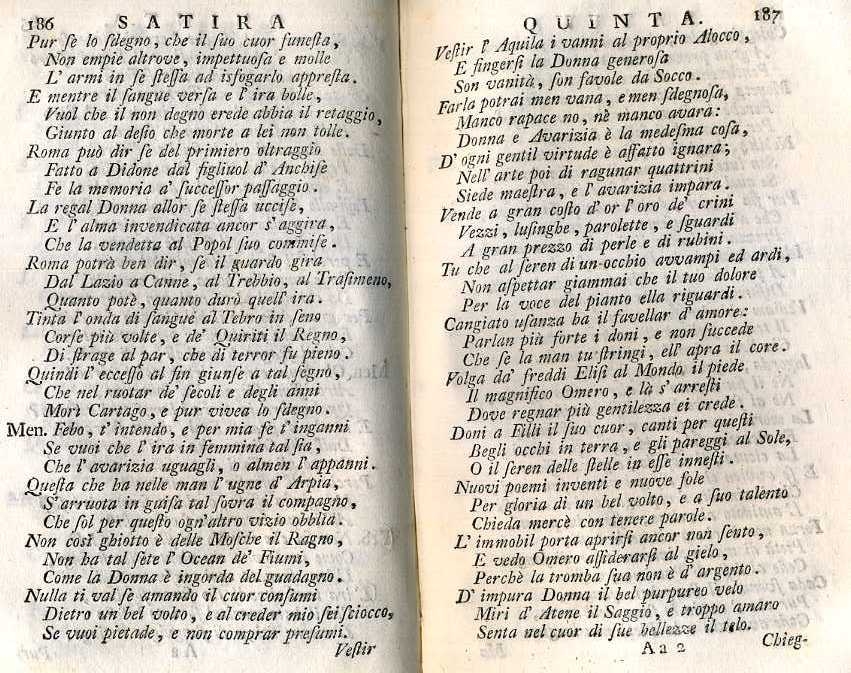 186 SATIRA
Pur ſe lo ſdegno, che il ſuo cuor funeſta,
Non empie altrove, impettuoſa e molle
L' armi in ſe ſteſſa ad isfogarlo appreſta.
E mentre il ſangue verſa e l' ira bolle,
Vuol che il non degno erede abbia il retaggio,
Giunto al deſio che morte a lei non tolle.
Roma può dir ſe del primiero oltraggio
Fatto a Didone dal figliuol d' Anchiſe
Fe la memoria a' ſucceſſor paſſaggio.
La regal Donna allor ſe ſteſſa ucciſe,
E l' alma invendicata ancor s'aggira,
Che la vendetta al Popol ſuo commiſe.
Roma potrà ben dir, ſe il guardo gira
Dal Lazio a Canne, al Trebbio, al Traſimeno,
Quanto potè, quanto durò quell' ira.
Tinta l' onda di ſangue al Tebro in ſeno
Corſe più volte, e de' Quiriti il Regno,
Di ſtrage al par, che di terror fu pieno.
Quindi l' ecceſſo al fin giunſe a tal ſegno,
Che nel ruotar de' ſecoli e degli anni
Morì Cartago, e pur vivea lo ſdegno.
Men. Febo, t' intendo, e per mia fe t' inganni
Se vuoi che l' ira in femmina tal ſia,
Che l' avarizia uguagli, o almen l' appanni.
Queſta che ha nelle man l' ugne d' Arpia,
S'arruota in guiſa tal ſovra il compagno,
Che ſol per queſto ogn'altro vizio obblia.
Non così ghiotto è delle Moſche il Ragno,
Non ha tal ſete l' Ocean de' Fiumi,
Come la Donna è ingorda del guadagno.
Nulla ti val ſe amando il cuor conſumi
Dietro un bel volto, e al creder mio ſei ſciocco,
Se vuoi pietade, e non comprar preſumi.
Veſtir
QUINTA. 187
Veſtir l' Aquila i vanni al proprio Alocco,
E fingerſi la Donna generoſa
Son vanità, ſon favole da Socco.
Farla potrai men vana, e men ſdegnoſa,
Manco rapace no, nè manco avara:
Donna e Avarizia è la medeſma coſa,
D' ogni gentil virtude è affatto ignara;
Nell' arte poi di ragunar quattrini
Siede maeſtra, e l' avarizia impara.
Vende a gran coſto d' or l' oro de' crini
Vezzi, luſinghe, parolette, e ſguardi
A gran prezzo di perle e di rubini.
Tu che al ſeren di un occhio avvampi ed ardi,
Non aſpettar giammai che il tuo dolore
Per la voce del pianto ella riguardi.
Cangiato uſanza ha il favellar d' amore:
Parlan più forte i doni, e non ſuccede
Che ſe la man tu ſtringi, ell' apra il core.
Volga da' freddi Eliſi al Mondo il piede
Il magnifico Omero, e là s' arreſti
Dove regnar più gentilezza ei crede.
Doni a Filli il ſuo cuor, canti per queſti
Begli occhi in terra, e gli pareggi al Sole,
O il ſeren delle ſtelle in eſſe inneſti.
Nuovi poemi inventi e nuove fole
Per gloria di un bel volto, e a ſuo talento
Chieda mercè con tenere parole.
L' immobil porta aprirſi ancor non ſento,
E vedo Omero aſſiderarſi al gielo,
Perchè la tromba ſua non è d' argento.
D' impura Donna il bel purpureo velo
Miri d' Atene il Saggio, e troppo amaro
Senta nel cuor di ſue bellezze il telo.
Aa 2 Chieg-